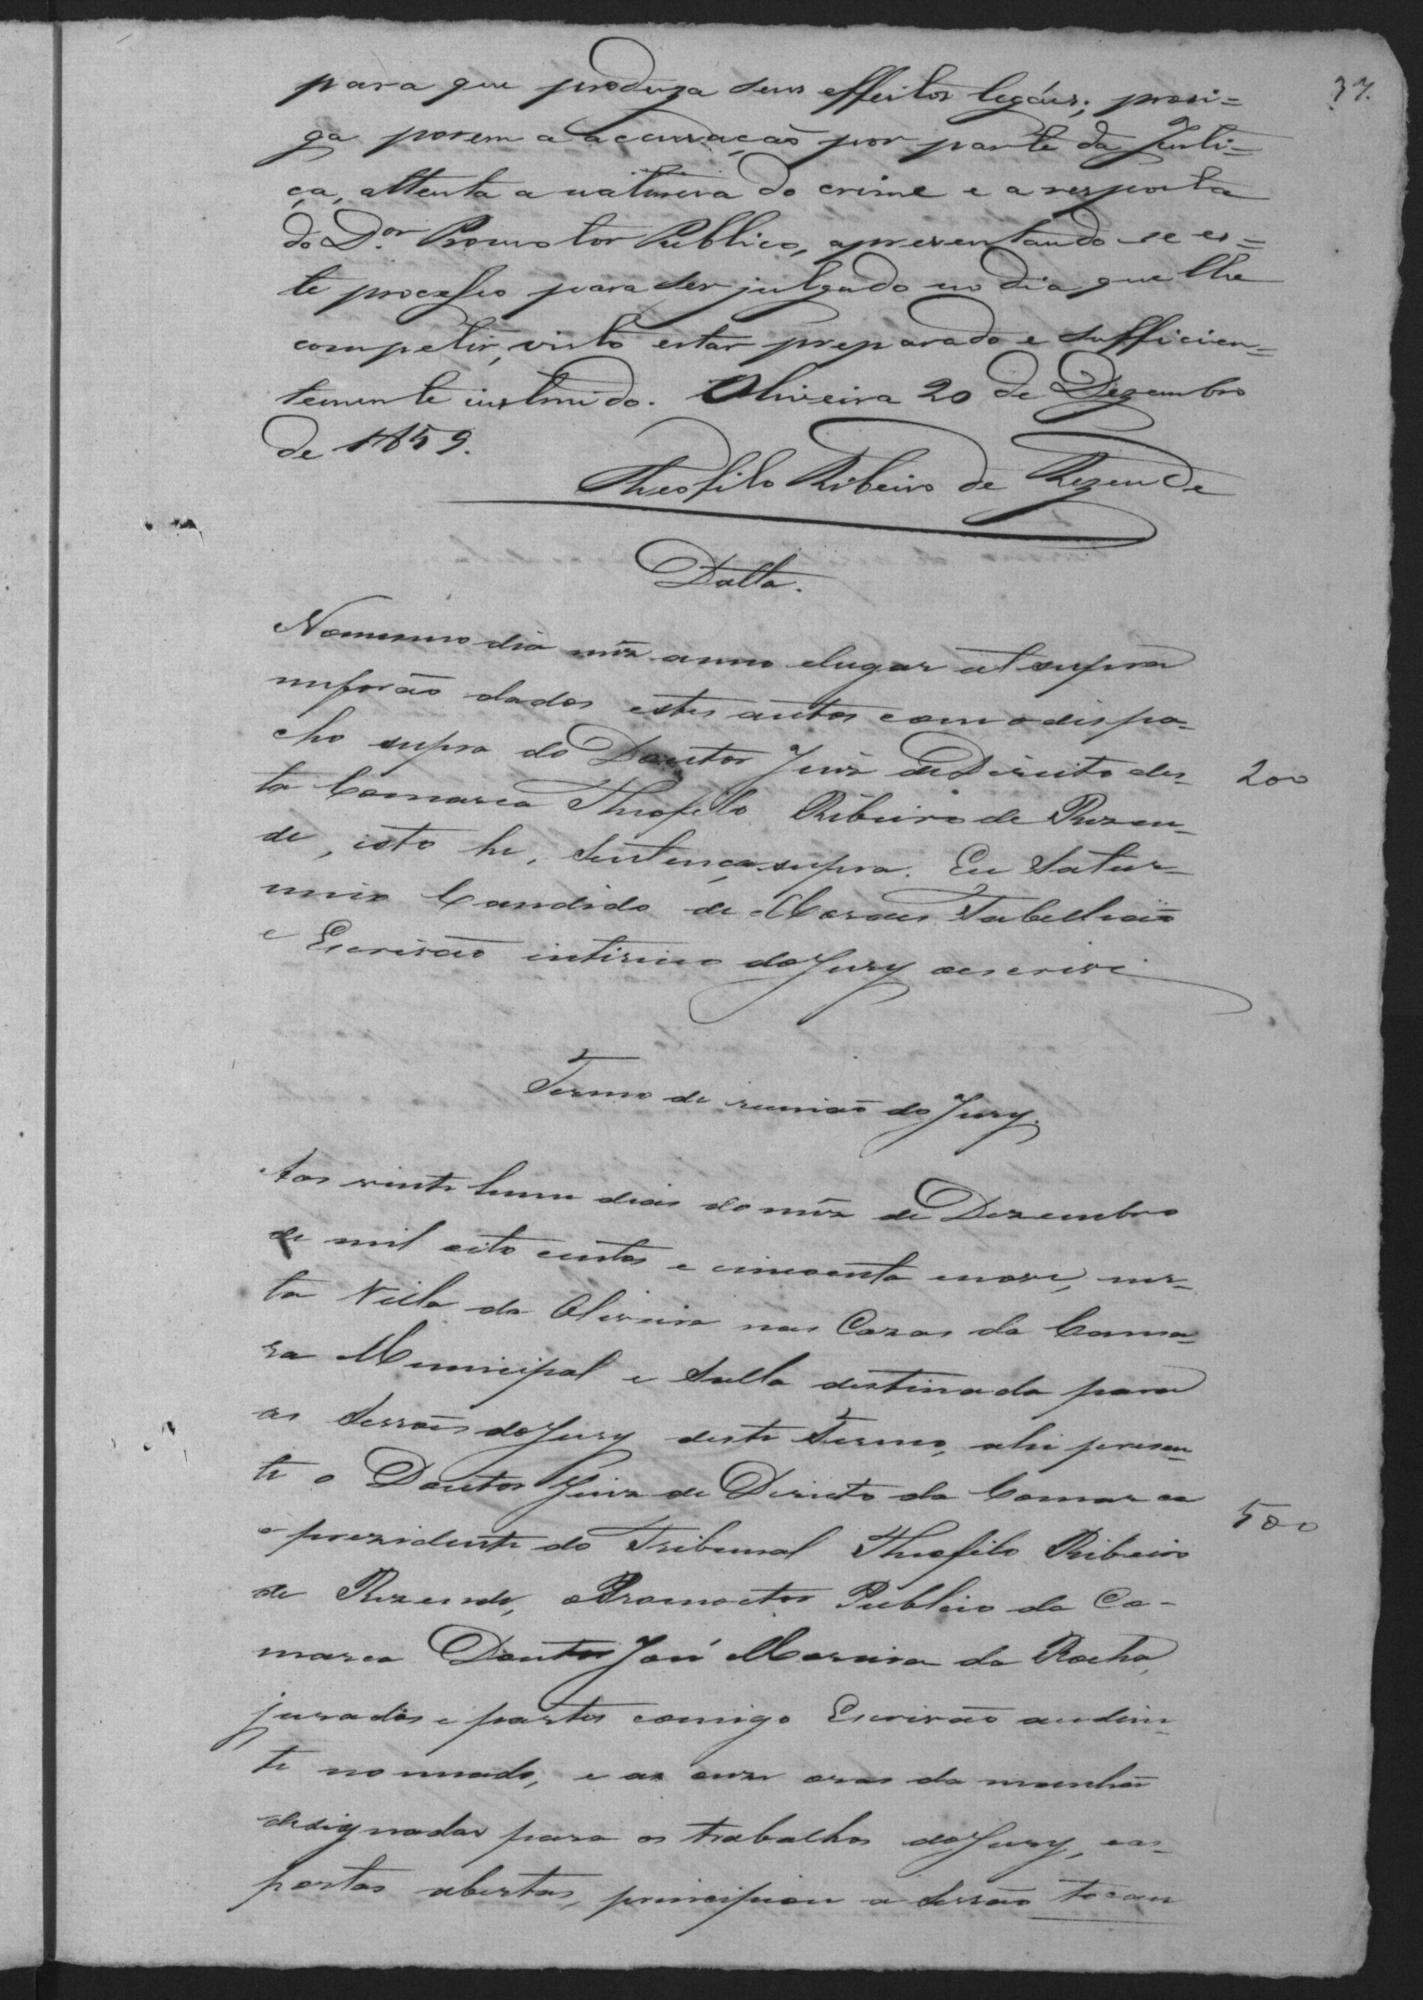 37.
para que produza seus effeitos legáes; prosi=
ga porem a accusação por parte da Justi=
ça, attenta a natureza do crime e a resposta
do D.or Promotor Publico, apresentando-se es=
te processo para ser julgado no dia que lhe
competir, visto estar preparado e sufficien=
temente instruido. Oliveira 20 de Dezembro
de 1859.
Theofilo Ribeiro de Rezende
Datta.
No mesmo dia mêz anno elugar ut supra
mef orão dados estes autos com o dispa-
cho supra do Doutor Juiz de Direito des-
ta Comarca Theofilo Ribeiro de Rezen-
de, isto he, Sentença supra. Eu Satur-
nino Candido de Moraes Tabellião
e Escrivão intirino do Jury o escrivi
200
Termo de reunião do Jury.
Aos vinte hum dias do mêz de Dezembro
de mil oito centos e cincoenta e nove, nes-
ta Villa da Oliveira nas Cazas da Cama-
ra Municipal e Salla destinada para
as Sessões do Jury deste Termo, ahi presen-
te o Doutor Juiz de Direito da Comarca
e prezidente do Tribunal Theofilo Ribeiro
de Rezende, o Promoctor Publico da Co-
marca Doutor José Moreira da Rocha,
jurados e partes comigo Escrivão audien-
te nomeado, e as onze oras da manhã
designadas para os trabalhos do Jury, e as
portas abertas, principiou a Sessão tocan
500